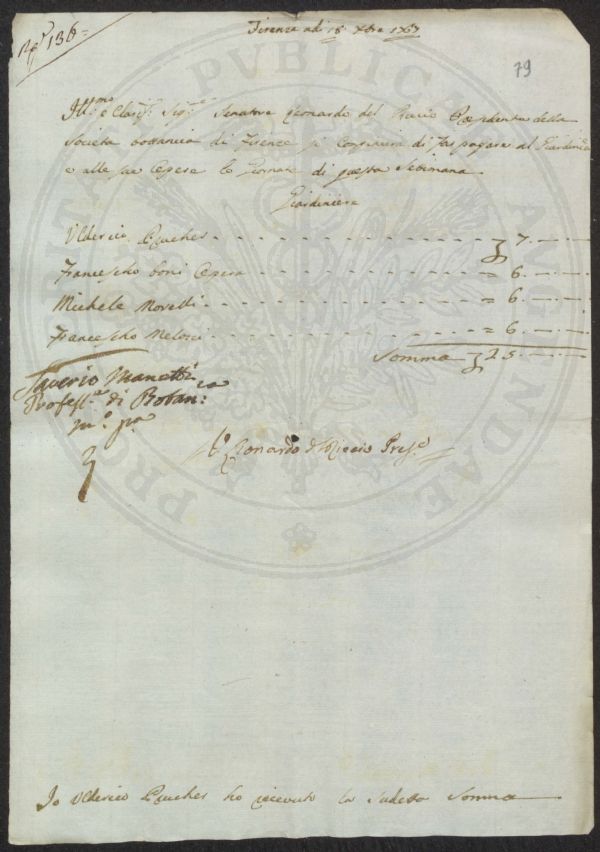 No 136=
Firenze adi 18 Xbre 1763
79
Ill:mo e Clariss: Sig:re Senatore Leonardo del Riccio Presidente della
Società bottanica di Firence si Compiacerà di far pagare al Giardiniere
e alle sue Opere le Giornate di questa Setimana
Giardiniere
Ulderico Prucher - - - 7. —
Francescho boni Opera - - - = 6. —
Michele Morelli - - - = 6. —
Francescho Melosi - - - = 6. —
Somma 25 —
Saverio Manetti
Profess:re di Botan:ca
m:o p:a
Leonardo d Riccio Pres:e
Io Ulderico Prucher ho ricevuto la Sudetta Somma
PRO VNITATE PVBLICAE AVGENDAE